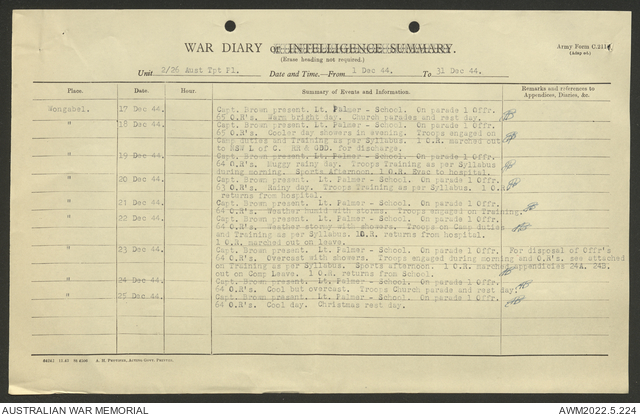 WAR DIARY or INTELLIGENCE SUMMARY.
(Erase heading not required.)
Army Form C.2118
Unit 2/26 Aust Tpt Pl. Date and Time.—From 1 Dec 44. To 31 Dec 44.
Place. Date. Hour. Summary of Events and Information. Remarks and references to Appendices, Diaries, &c.
Wongabel. 17 Dec 44. Capt. Brown present. Lt. Palmer - School. On parade 1 Offr.
65 O.R's. Warm bright day. Church parades and rest day.
" 18 Dec 44. Capt. Brown present. Lt. Palmer - School. On parade 1 Offr.
65 O.R's. Cooler day showers in evening. Troops engaged on
Camp duties and Training as per Syllabus. 1 O.R. marched out
to NSW L of C. for discharge.
19 Dec 44. Capt. Brown present. Lt. Palmer - School. On parade 1 Offr.
64 O.R's. Muggy rainy day. Troops Training as per Syllabus
during morning. Sports Afternoon. 1 O.R. Evac to hospital.
" 20 Dec 44. Capt. Brown present. Lt. Palmer - School. On parade 1 Offr.
63 O.R's. Rainy day. Troops Training as per Syllabus. 1 O.R.
returns from hospital.
" 21 Dec 44. Capt. Brown present. Lt. Palmer - School. On parade 1 Offr.
64 O.R's. Weather humid with storms. Troops engaged on Training.
" 22 Dec 44. Capt. Brown present. Lt. Palmer - School. On parade 1 Offr.
64 O.R's. Weather stormy with showers. Troops on Camp duties
and Training as per Syllabus. 1O.R. returns from hospital.
1 O.R. marched out on leave.
" 23 Dec 44. Capt. Brown present. Lt. Palmer - School. On parade 1 Offr. For disposal of Offr's
64 O.R's. Overcast with showers. Troops engaged during morning and O.R's. see attached
on Training as per Syllabus. Sports afternoon. 1 O.R. marched appendicies 24A. 24B.
out on Comp Leave. 1 O.R. returns from School.
" 24 Dec 44. Capt. Brown present. Lt. Palmer - School. On parade 1 Offr.
64 O.R's. Cool but overcast. Troops Church parade and rest day.
" 25 Dec 44. Capt. Brown present. Lt. Palmer - School. On parade 1 Offr.
64 O.R's. Cool day. Christmas rest day.
AUSTRALIAN WAR MEMORIAL
AWM2022.5.224